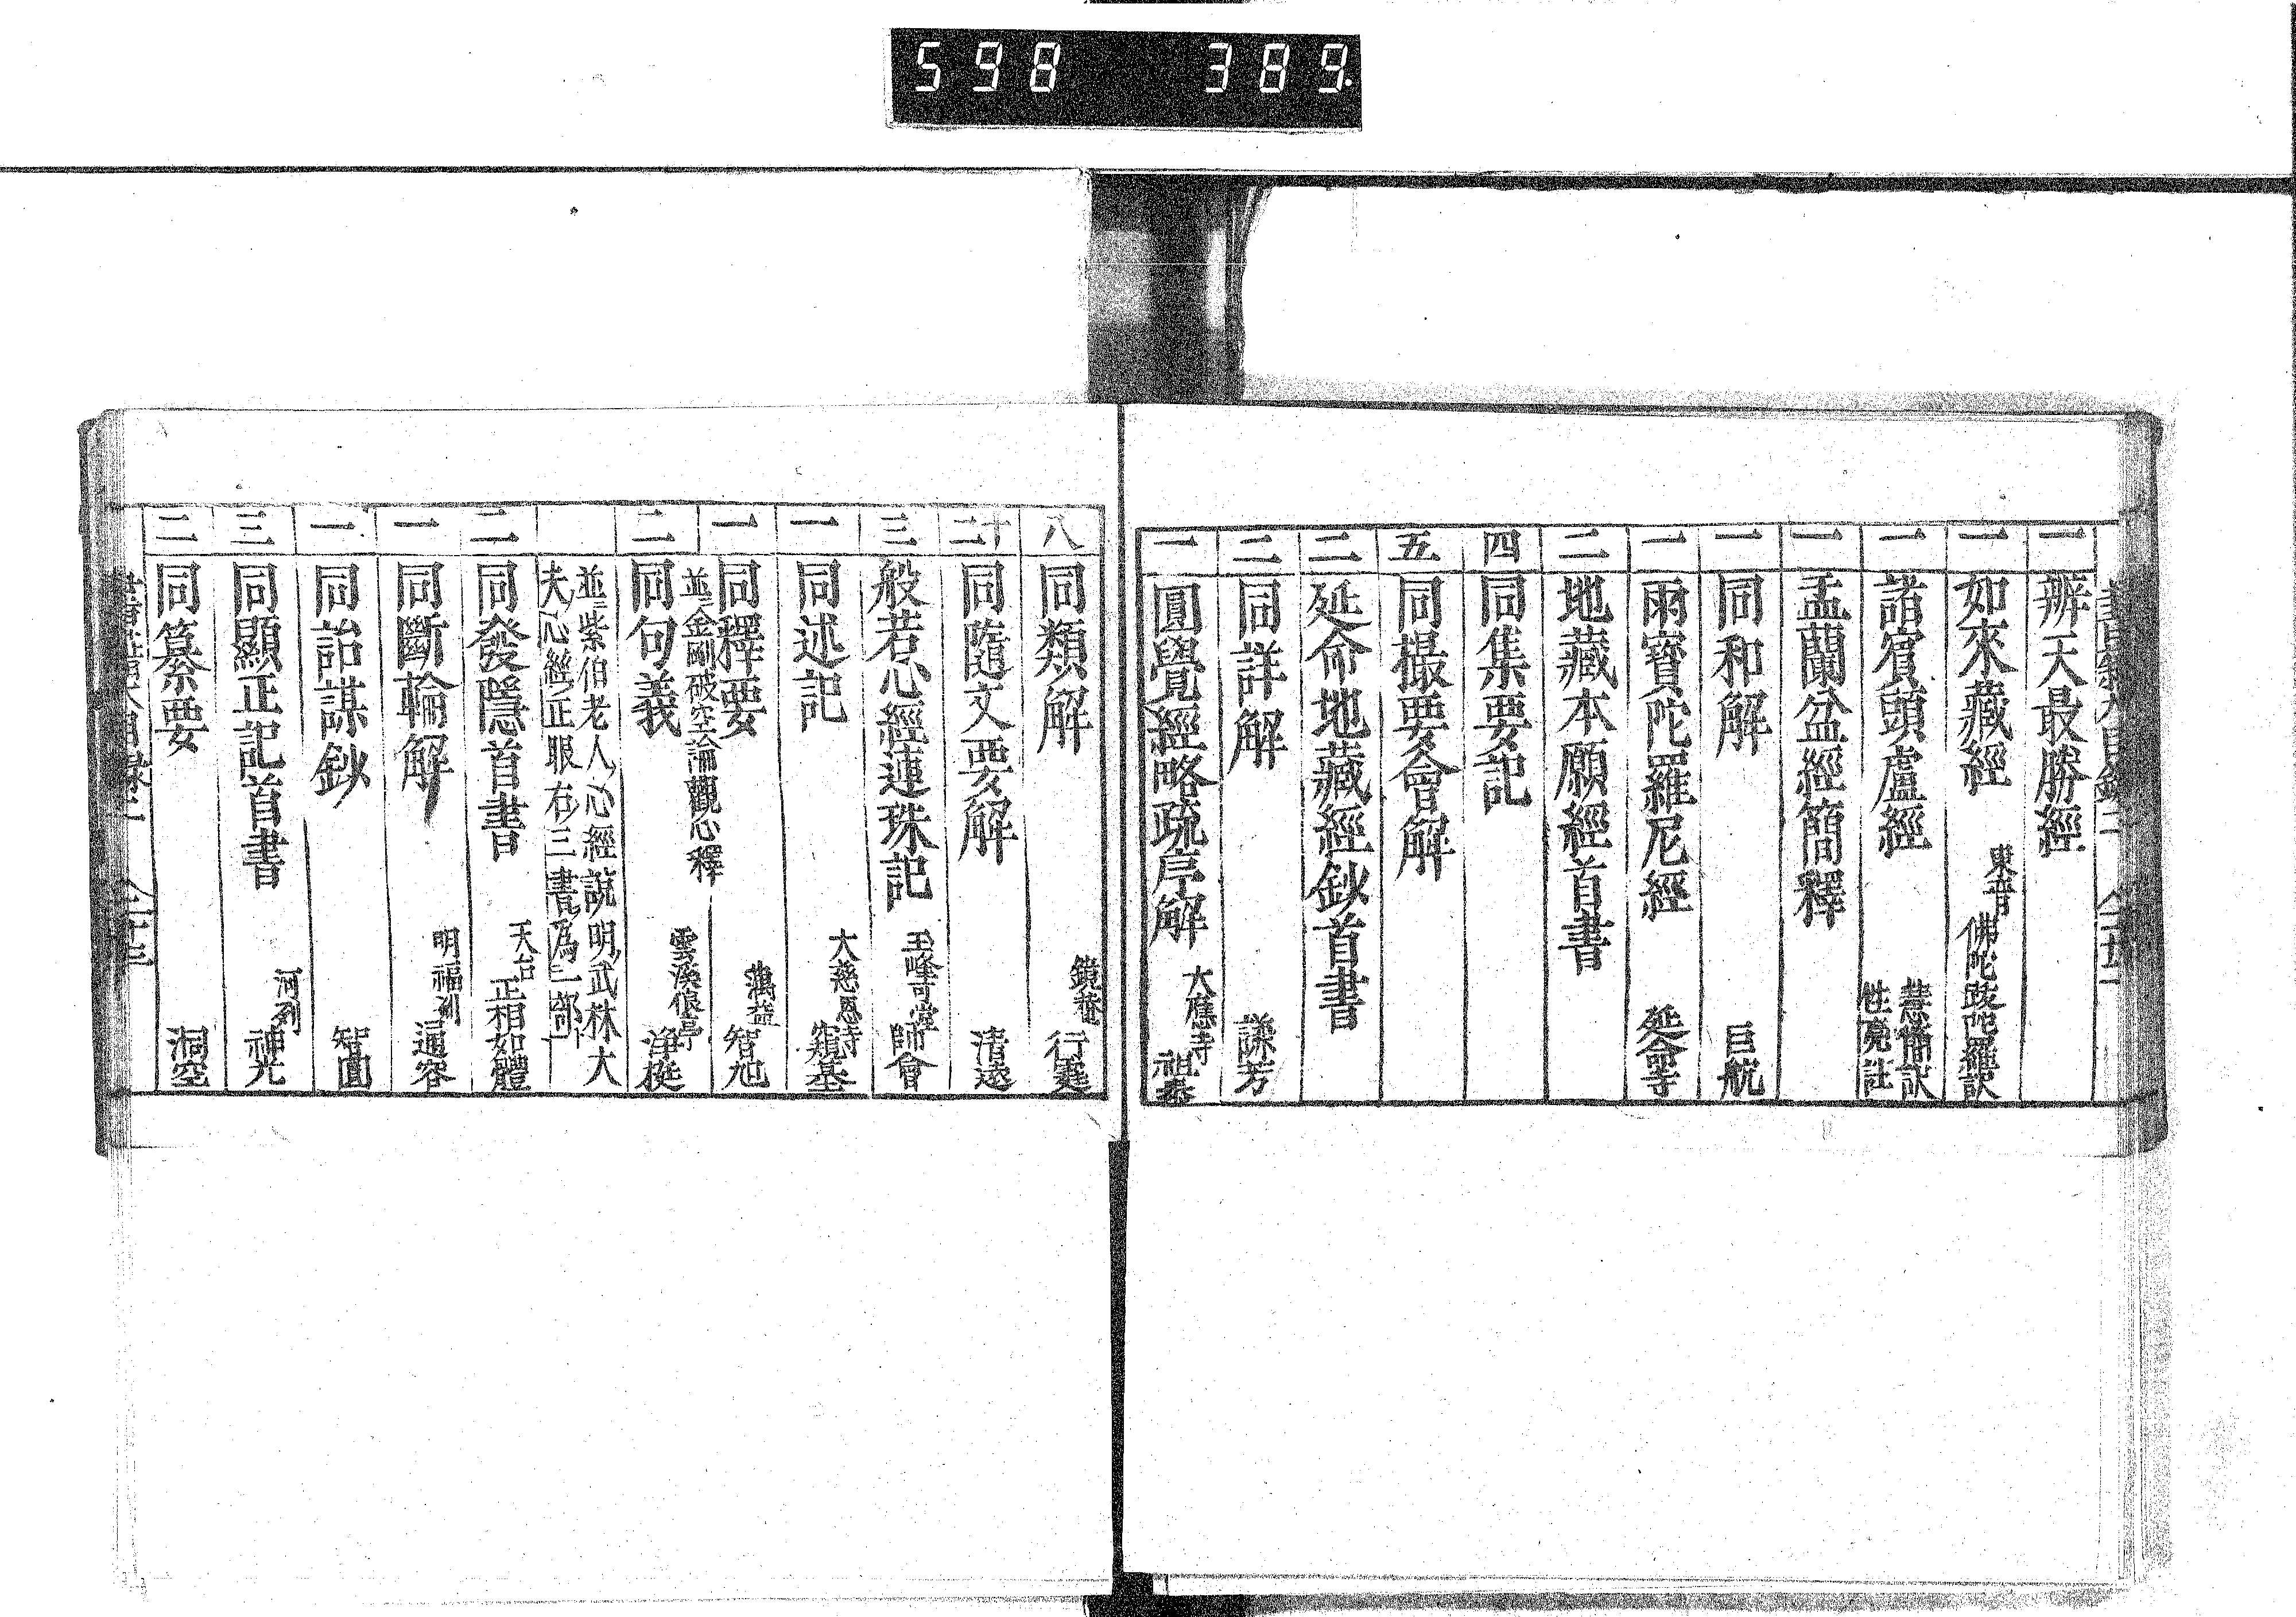 598 389.
一 辨天最勝經
一 如來藏經 東晉 佛陀跋陀羅訳
一 諸賓頭盧經 慧簡訳 性亮註
一 盂蘭盆經簡釋
一 同和解 巨航
一 雨寶陀羅尼經 延命寺
二 地藏本願經首書
四 同集要記
五 同撮要會解
二 延命地藏經鈔首書
二 同詳解 謙芳
一 圓覺經略疏序解 大應寺 祖泰
八 同類解 鏡菴 行霆
十二 同隨文要解 清遠
三 般若心經連珠記 玉峰可堂 師會
一 同述記 大慈恩寺 窺基
一 同釋要 蕅益 智旭
並金剛破空論觀心釋
二 同句義 雲溪俍亭 淨挺
並紫伯老人心經說明武林大
夫心經正眼右三書為一部
二 同發隱首書 天台 正相如體
一 同斷輪解 明福刕 通容
一 同詒謀鈔 智圓
三 同顯正記首書 河刕 神光
二 同纂要 洞空